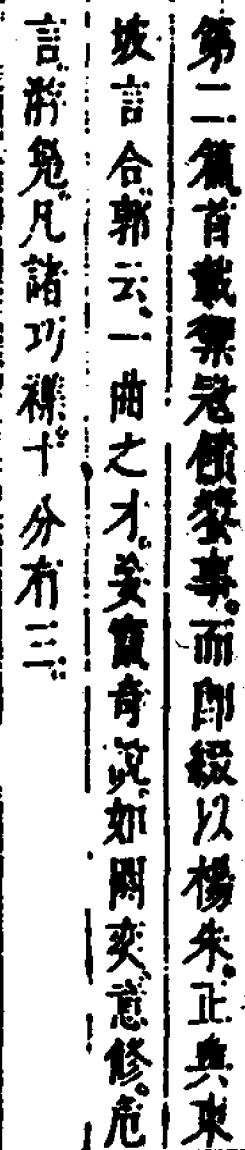 第二篇首載禦寇饋漿事而即綴以楊朱正與東
坡言合郭云一曲之才妄竄奇說如閼奕意修巵
言游鳧凡諸巧襍十分有三